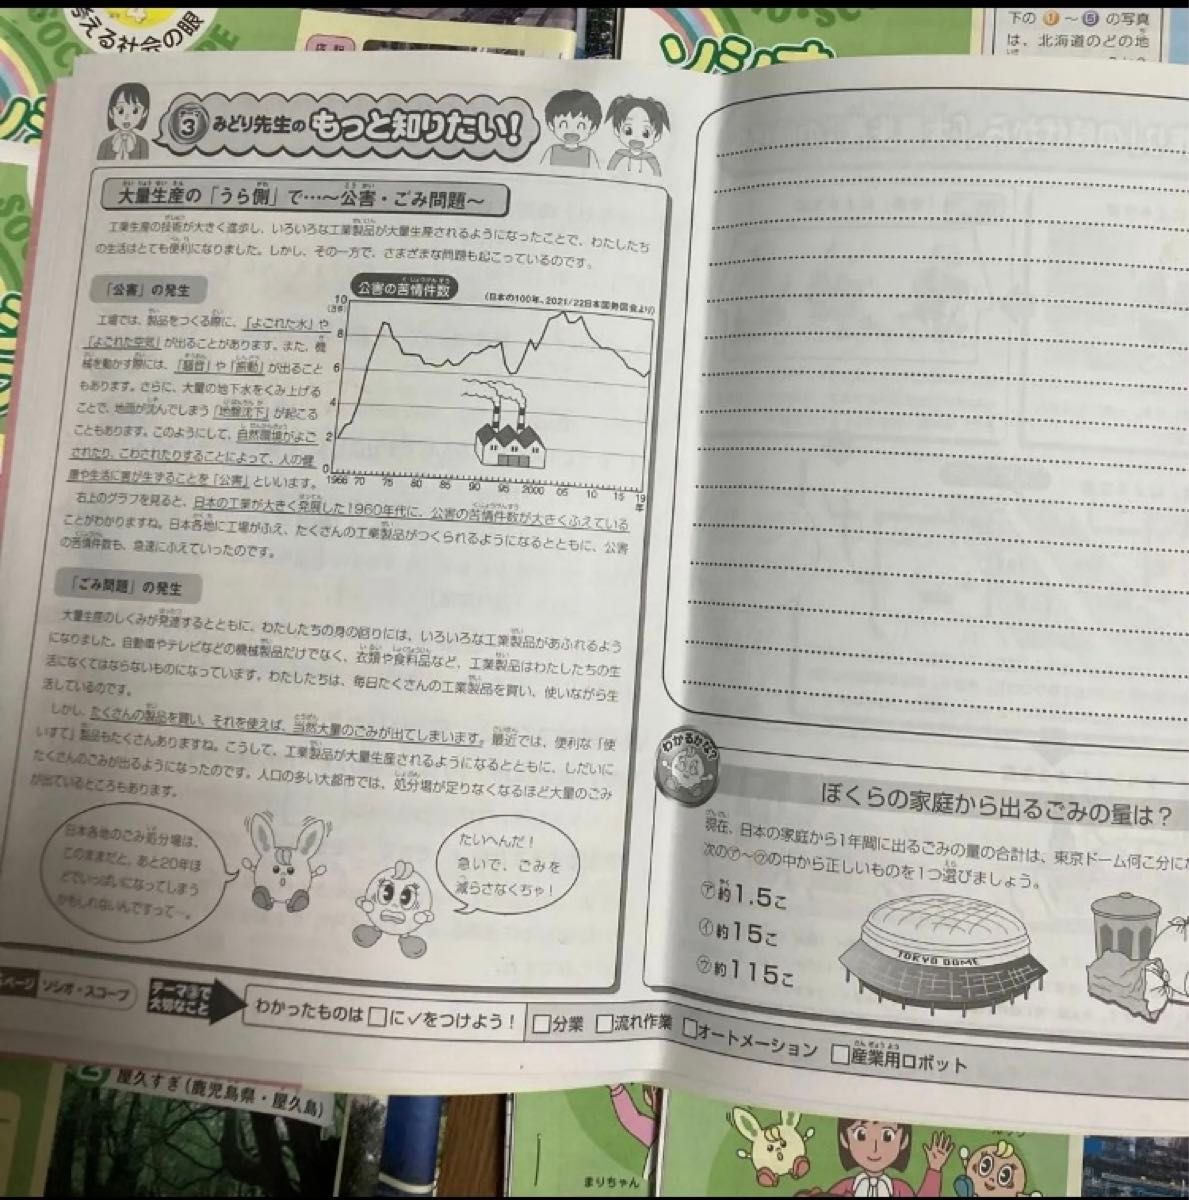 考える社会の眼
下の①〜⑤の写真
は、北海道のどの地
③みどり先生のもっと知りたい!
大量生産の「うら側」で……〜公害・ごみ問題〜
工業生産の技術が大きく進歩し、いろいろな工業製品が大量生産されるようになったことで、わたしたち
の生活はとても便利になりました。しかし、その一方で、さまざまな問題も起こっているのです。
「公害」の発生
工場では、製品をつくる際に、「よごれた水」や
「よごれた空気」が出ることがあります。また、機
械を動かす際には、「騒音」や「振動」が出ること
もあります。さらに、大量の地下水をくみ上げる
ことで、地面が沈んでしまう「地盤沈下」が起こる
こともあります。このようにして、自然環境がよご
されたり、こわされたりすることによって、人の健
康や生活に害が生ずることを「公害」といいます。
公害の苦情件数
(日本の100年、2021/22日本国勢図会より)
10
(万件)
8
6
4
2
0
1966 70 75 80 85 90 95 2000 05 10 15 19
年
右上のグラフを見ると、日本の工業が大きく発展した1960年代に、公害の苦情件数が大きくふえている
ことがわかりますね。日本各地に工場がふえ、たくさんの工業製品がつくられるようになるとともに、公害
の苦情件数も、急速にふえていったのです。
「ごみ問題」の発生
大量生産のしくみが発達するとともに、わたしたちの身の回りには、いろいろな工業製品があふれるよう
になりました。自動車やテレビなどの機械製品だけでなく、衣類や食料品など、工業製品はわたしたちの生
活になくてはならないものになっています。わたしたちは、毎日たくさんの工業製品を買い、使いながら生
活しているのです。
しかし、たくさんの製品を買い、それを使えば、当然大量のごみが出てしまいます。最近では、便利な「使
いすて」製品もたくさんありますね。こうして、工業製品が大量生産されるようになるとともに、しだいに
たくさんのごみが出るようになったのです。人口の多い大都市では、処分場が足りなくなるほど大量のごみ
が出ているところもあります。
日本各地のごみ処分場は、
このままだと、あと20年ほ
どでいっぱいになってしまう
かもしれないんですって〜。
たいへんだ!
急いで、ごみを
減らさなくちゃ!
ソシオ・スコープ
テーマ3で
大切なこと
わかったものは□に✓をつけよう!
□分業 □流れ作業 □オートメーション □産業用ロボット
わかるかな?
ぼくらの家庭から出るごみの量は?
現在、日本の家庭から1年間に出るごみの量の合計は、東京ドーム何こ分に
次の㋐〜㋒の中から正しいものを1つ選びましょう。
㋐約1.5こ
㋑約15こ
㋒約115こ
TOKYO DOME
② 屋久すぎ(鹿児島県・屋久島)
まりちゃん